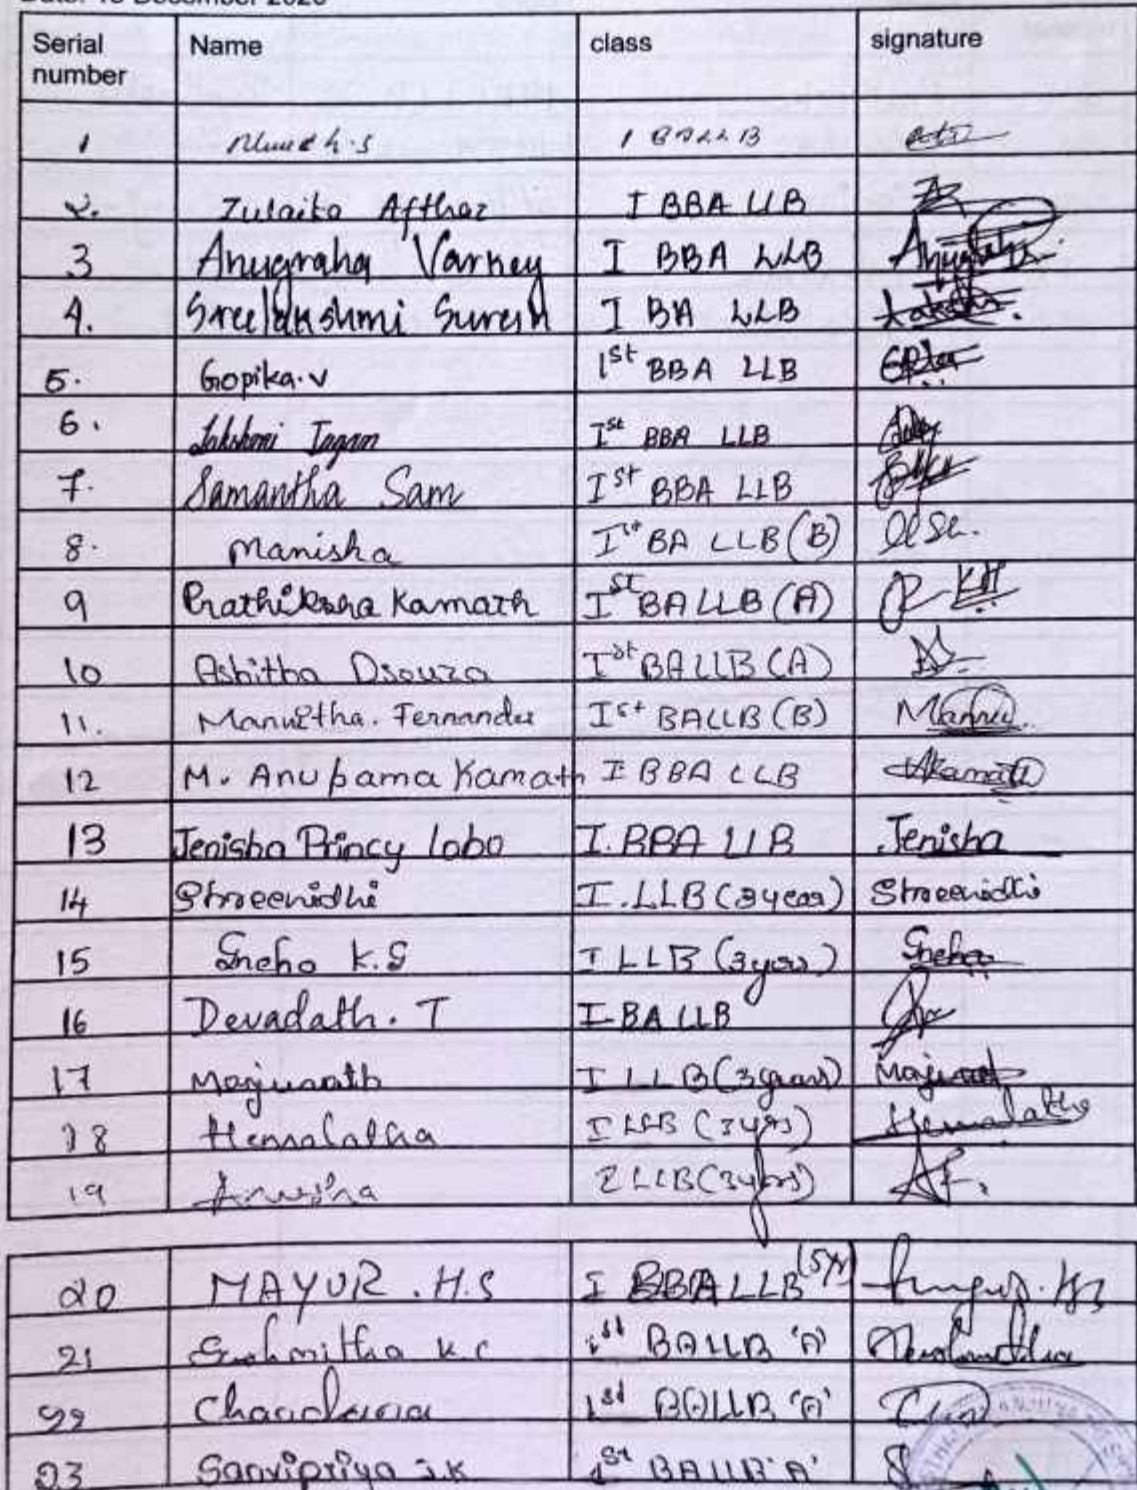 Serial number Name class signature
1 I BALLB
2. Zulaika Afthar I BBA LLB
3 Anugraha Varkey I BBA LLB
4. Sreelakshmi Suresh I BA LLB
5. Gopika.V 1st BBA LLB
6. Lakshmi Ist BBA LLB
7. Samantha Sam Ist BBA LLB
8. Manisha Ist BA LLB (B)
9 Prathiksha Kamath Ist BA LLB (A)
10 Ashitha Dsouza Ist BALLB (A)
11. Fernandes Ist BALLB (B)
12 M. Anupama Kamath I BBA LLB
13 Jenisha Princy Lobo I.BBA LLB Jenisha
14 Shreenidhi I.LLB (3year) Shreenidhi
15 Sneha K.S I LLB (3years) Sneha
16 Devadath. T I BA LLB
17 Manjunath I LLB (3years)
18 Hemalatha I LLB (3yrs) Hemalatha
19 Anusha LLB (3yrs)
20 MAYUR . H.S I BBALLB (5yr)
21 K.C 1st BALLB 'A'
22 Chandana 1st BALLB 'A'
23 Sanvipriya J.K 1st BALLB 'A'